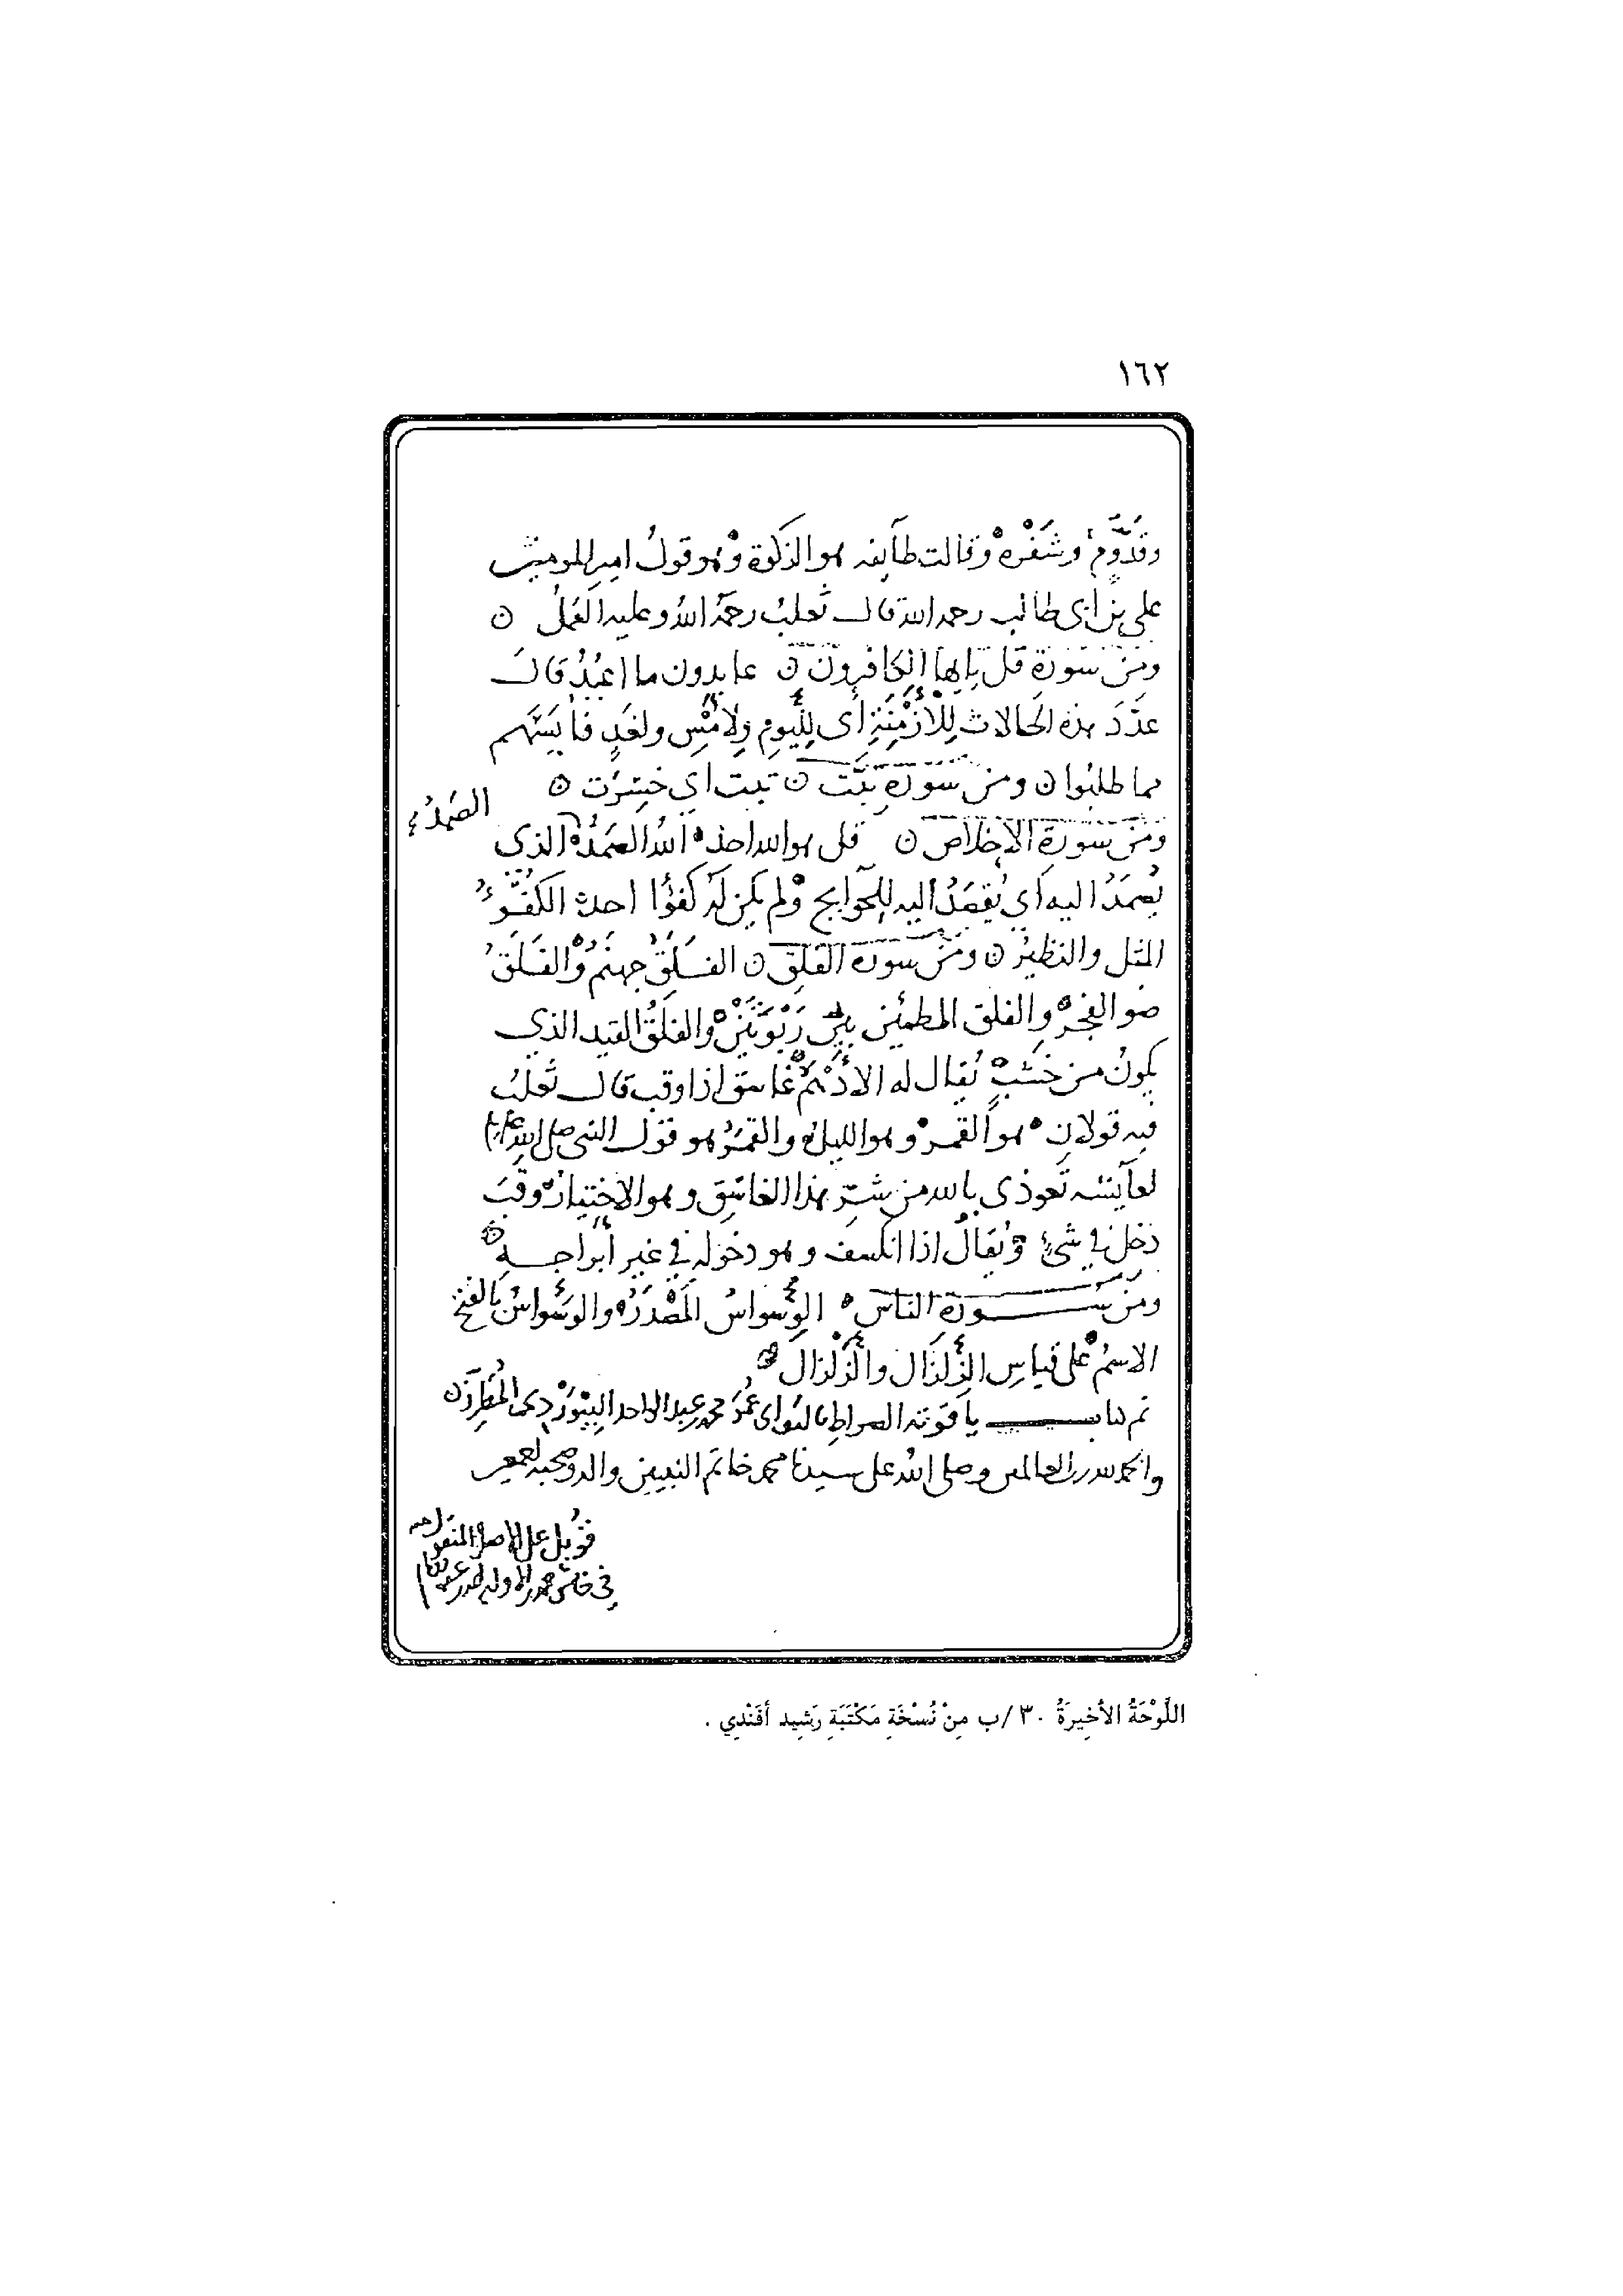 ١٦٢
وقَدُّومٍ وشَفْرة وقالت طآيفه هو الزكوة وهو قولُ امير المومنين
علي بن ابي طالب رحمه الله قال ثعلبٌ رحمَهُ اللهُ وعليه العَمَلُ
ومن سورة قل يايها الكافرون عابدون ما اعْبُدُ قال
عدَّدَ هذه الحالات لِلْأزْمِنَةِ أى لِلْيومِ ولِأَمْسِ ولغَدٍ فأيسَهم
مما طلبوا ومن سورة تبت تبت اي خَسِرَت
الصَمَدُ
ومن سورة الاخلاص قل هو الله احد الله الصمدُ الذى
يُصمَدُ اليه أي يُقصَدُ اليه للحوايج ولم يكن له كفؤًا احد الكُفُوءُ
المثل والنظيرُ ومن سورة الفلق الفَلَقُ جهنم والفَلَقُ
ضو الفجر والفلق المطمئن بين رَبْوَتَيْنِ والفلَقُ القيد الذي
يكونُ من خشبٍ يُقال له الأَدْهَمُ غاسق اذا وقب قال ثعلبٌ
فيه قولان هو القمر وهو الليل والقمرُ هو قول النبي صلى الله عليه
لعآيشه تعوذى بالله من شرِّ هذا الغاسِقِ وهو الاختيار وقَبَ
دخل في شئٍ ويُقالُ اذا انكسف وهو دخوله في غير أبراجه
ومن سورة الناس الوِسْواسُ المَصْدَرُ والوَسْواسُ بالفتح
الاسمُ على قياسِ الزِّلزال والزَّلزال
تم كتاب ياقوته الصراط تاليف أبى عُمَرَ محمد عبد الواحد المُطَرِّز
والحمد لله رب العالمين وصلى الله على سيدنا محمد خاتم النبيين واله وصحبه اجمعين
قوبل على الاصل المنقول منه
اللَّوْحَةُ الأخِيرَةُ ٣٠/ب مِنْ نُسْخَةِ مَكْتَبَةِ رَشِيد أفَنْدِي .